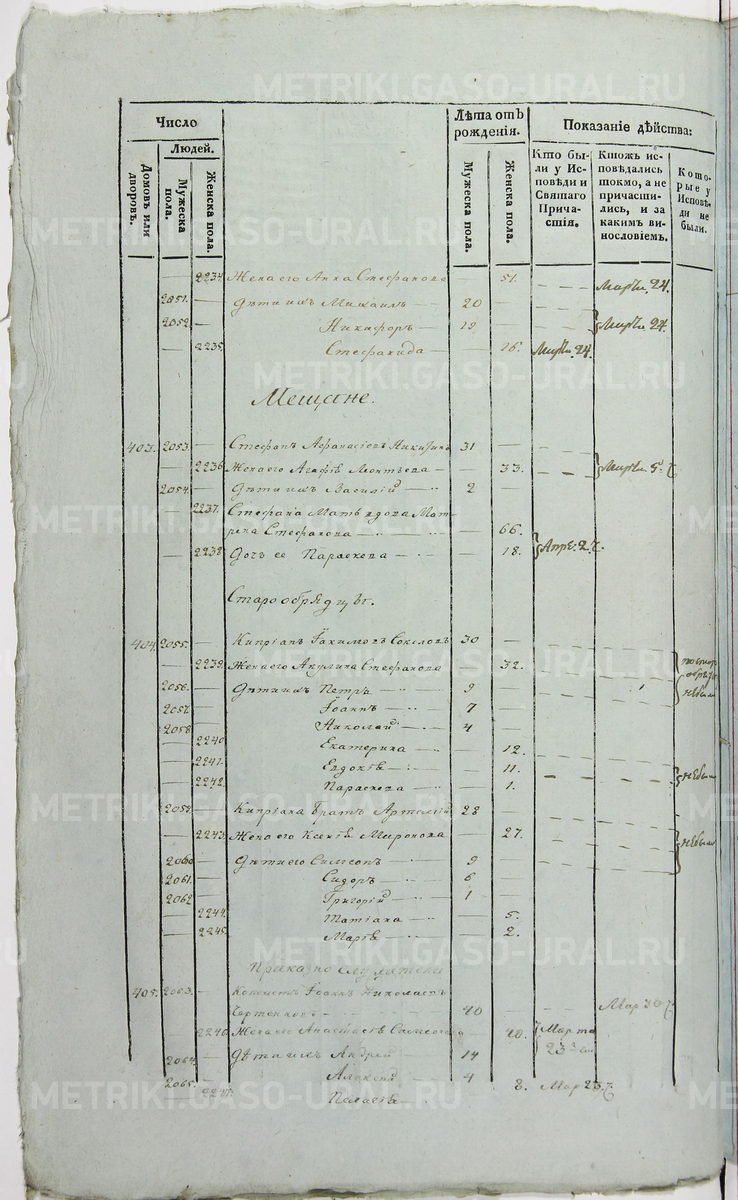 Число
Людей.
Домовъ или дворовъ.
Мужеска пола.
Женска пола.
Лѣта отъ рожденія.
Мужеска пола.
Женска пола.
Показаніе дѣйства:
Кто были у Исповѣди и Святаго Причастія.
Ктожъ исповѣдались токмо, а не причастились, и за какимъ винословіемъ.
Которые у Исповѣди не были.
2234 Жена его Анна Стефанова 51. Мар. 24.
2051. Дѣти ихъ Михаилъ 20
2052. Никифоръ 12 24.
2235 Стефанида 24.
Мещане.
403. 2053. Стефанъ Афанасіевъ 31
2236 Жена его Агафіѧ Леонтьева 33.
2054 Дѣти ихъ Василій 2
2237. Стефана Мать вдова Мат-
рена Стефанова 66.
2238 Дочь ее Параскева 18. Апр: 2.
Старообрядцы.
404. 2055. Кипріанъ 30
2239. Жена его Акулина Стефанова 32.
2056. Дѣти ихъ Петръ 9 небыли
2057. Іоаннъ 7
2058 Николай 4
2240 Екатерина 12.
2241. Евдокіѧ 11. небыли
2242. Параскева 1.
2059. Кипріана братъ Артемій 28
2243. Жена его Ксеніѧ Миронова 27. небыли
2060 Дѣти его Симеонъ 9
2061. Сидоръ 6
2062 Григорій 1
2244. Татіана 5.
2245. Маріѧ 2.
405. 2063. Копіистъ Іоаннъ
40 Мар 30
2246 Жена его Анастасіѧ 40. Марта
23
2064. Дѣти ихъ Андрей 14
2065. Алексѣй 4
2247. Пелагіѧ 8. Мар 23
METRIKI.GASO-URAL.RU